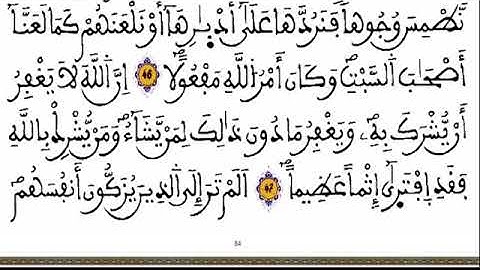 نَّطْمِسَ وُجُوهاً فَنَرُدَّهَا عَلَىٰٓ أَدْبٰ۪رِهَآ أَوْ نَلْعَنَهُمْ كَمَا لَعَنَّآ
أَصْحَٰبَ اَ۬لسَّبْتِۖ وَكَانَ أَمْرُ اُ۬للَّهِ مَفْعُولاًۖ 46 إِنَّ اَ۬للَّهَ لَا يَغْفِرُ
أَنْ يُّشْرَكَ بِهِۦ وَيَغْفِرُ مَا دُونَ ذَٰلِكَ لِمَنْ يَّشَآءُۖ وَمَنْ يُّشْرِكْ بِاللَّهِ
فَقَدِ اِ۪فْتَر۪ىٰٓ إِثْماً عَظِيماًۖ 47 أَلَمْ تَرَ إِلَى اَ۬لذِينَ يُزَكُّونَ أَنفُسَهُمۖ
84